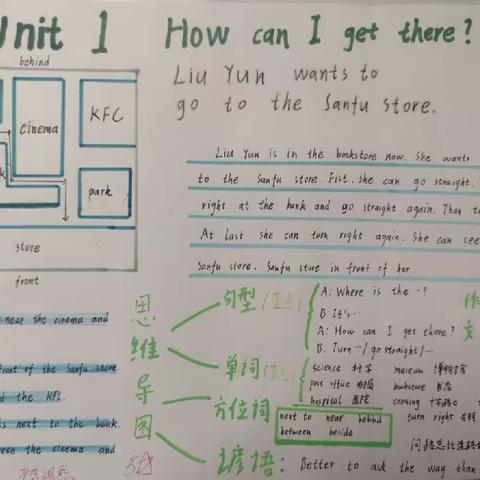 Unit 1 How can I get there?
behind
Cinema
KFC
park
store
front
Liu Yun wants to
go to the Sanfu store.
Liu Yun is in the bookstore now. She wants
to the Sanfu store. Fist. she can go straight.
right at the bank and go straight again. Then t
At last she can turn right again. She can see
Sanfu store. Sanfu store in front of her
near the cinema and
front of the Sanfu store
d the KFC.
is next to the bank.
een the cinema and
思维导图
句型
A: Where is the …?
B: It's…
A: How can I get there?
B. Turn…/ go straight/…
作文
单词
science 科学 museum 博物馆
post office 邮局 bookstore 书店
hospital 医院 crossing 十字路口
turn right 右转
方位词
next to near behind
between beside
谚语:
Better to ask the way than